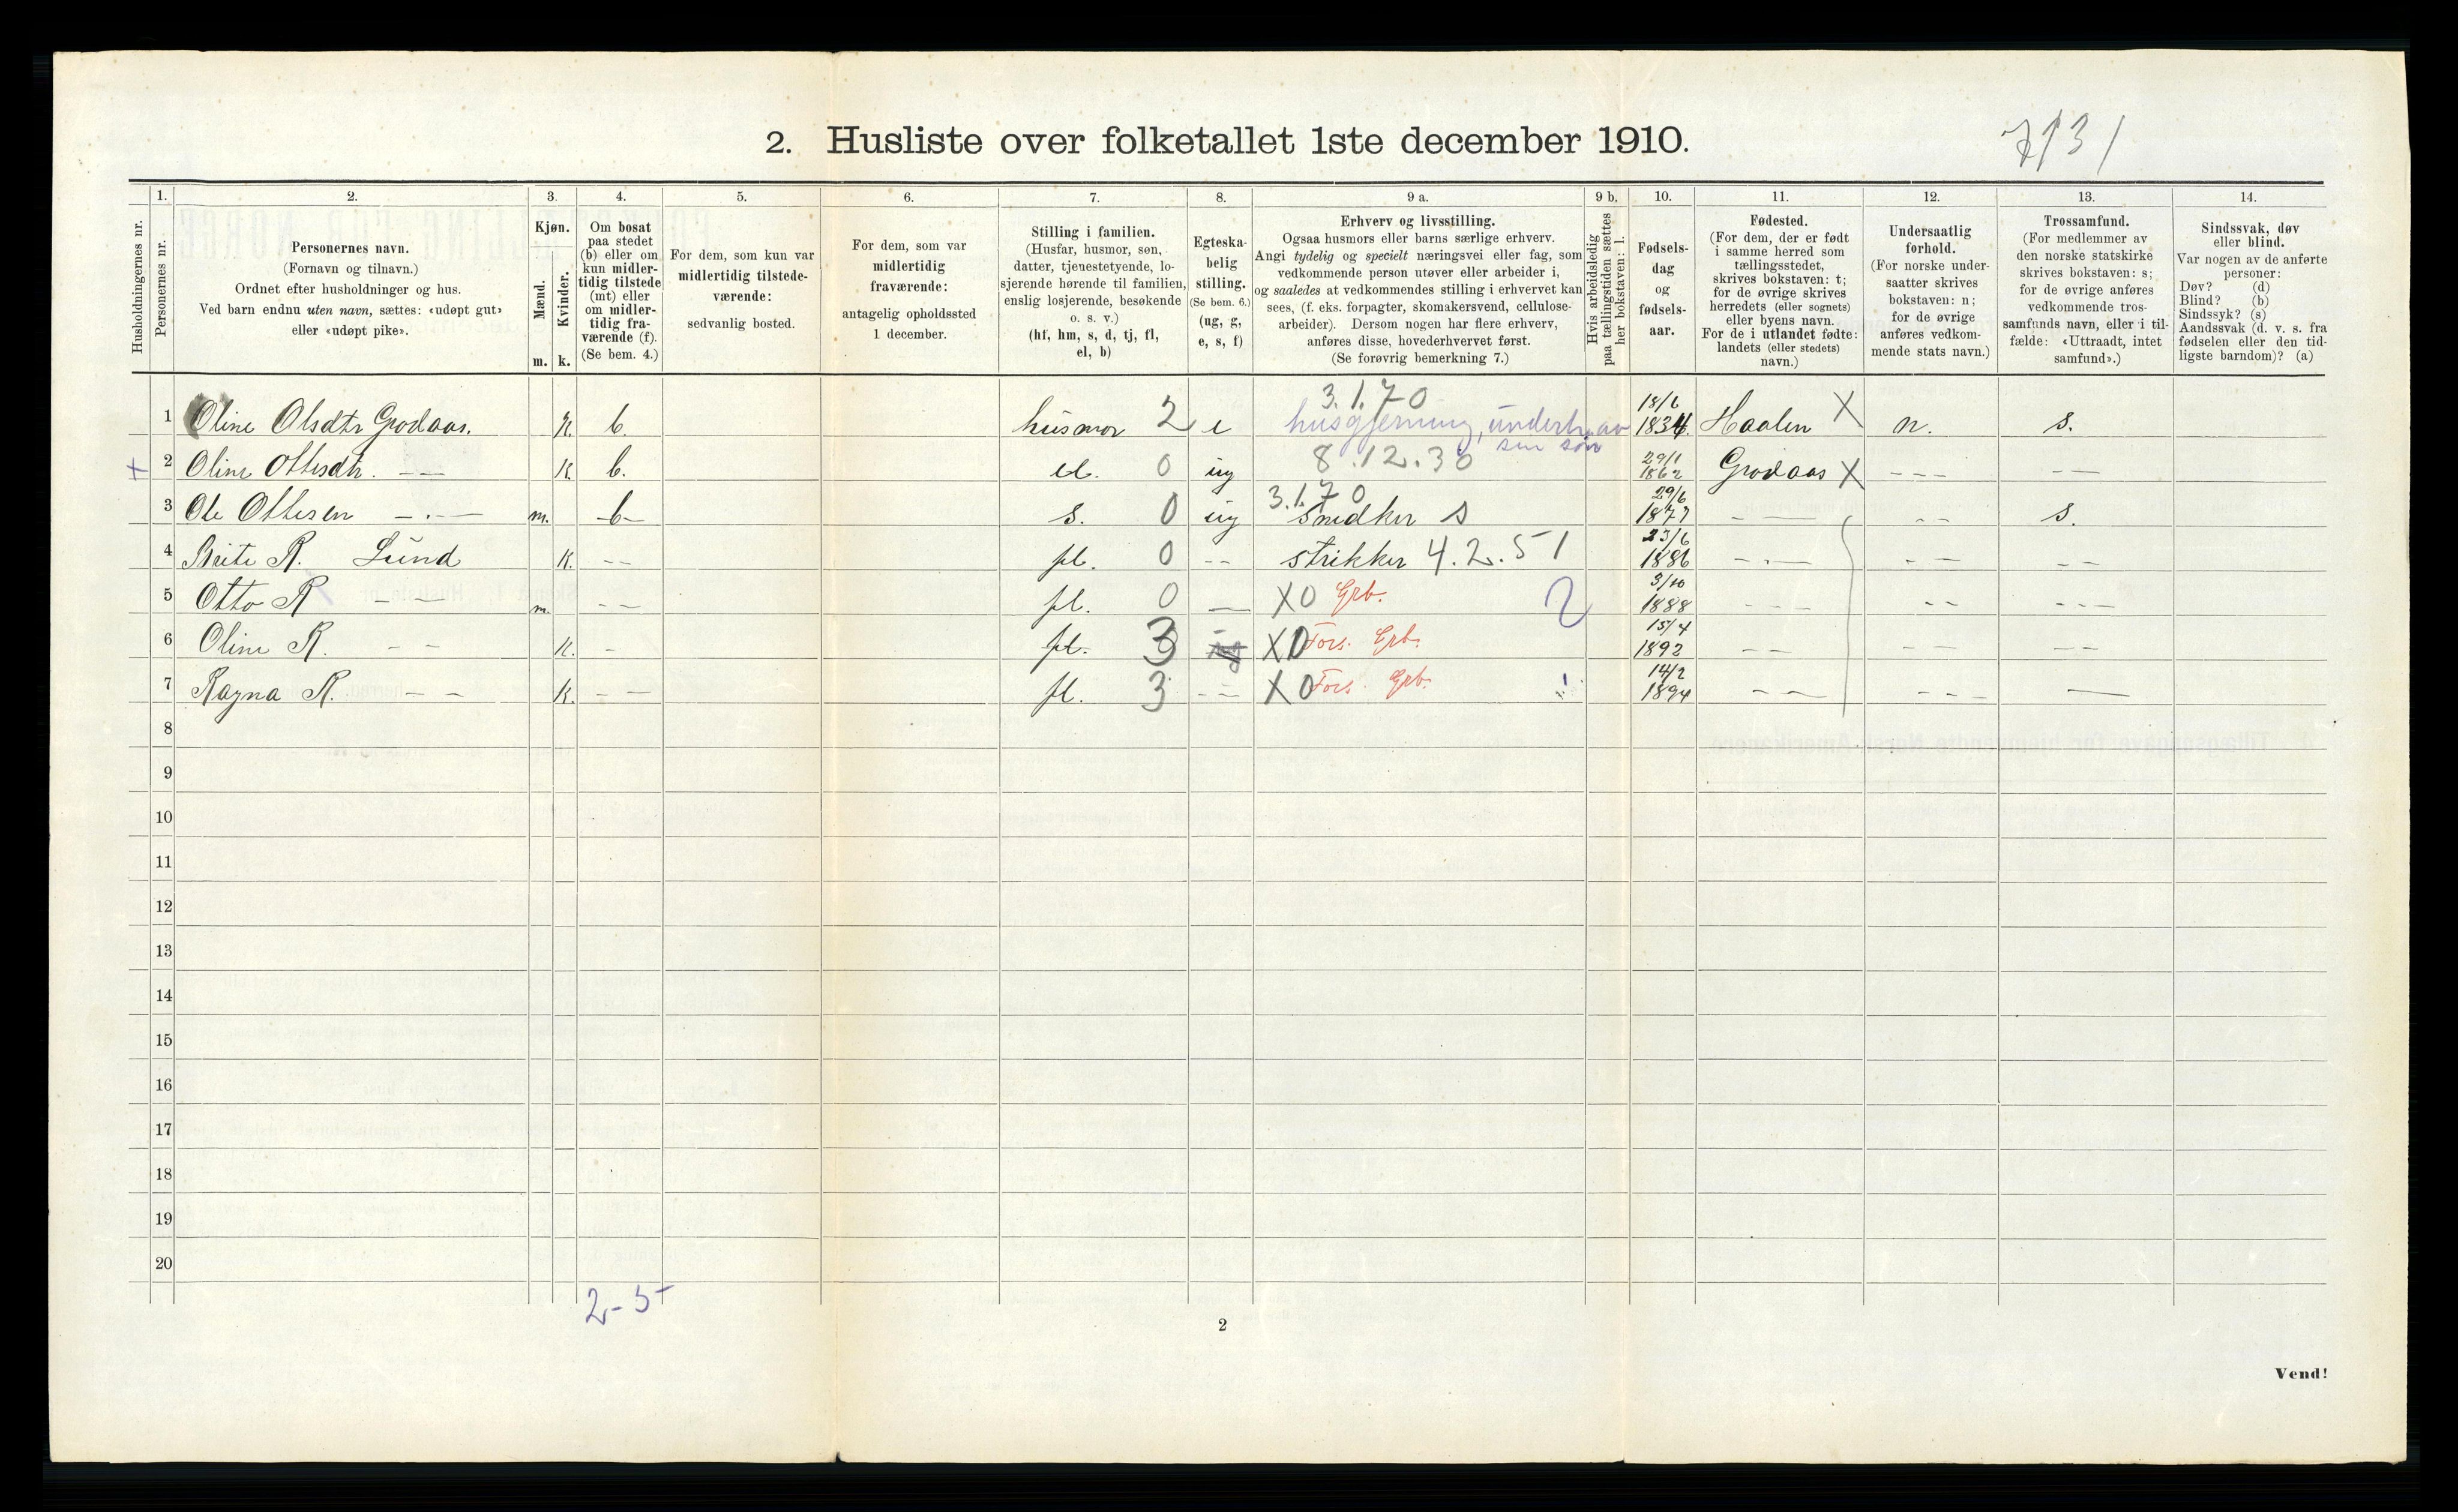 2. Husliste over folketallet 1ste december 1910.
7131
1. 2. 3. 4. 5. 6. 7. 8. 9 a. 9 b. 10. 11. 12. 13. 14.
Husholdningernes nr.
Personernes nr.
Personernes navn.
(Fornavn og tilnavn.)
Ordnet efter husholdninger og hus.
Ved barn endnu uten navn, sættes: «udøpt gut»
eller «udøpt pike».
Kjøn.
Mænd.
Kvinder.
m. k.
Om bosat
paa stedet
(b) eller om
kun midler-
tidig tilstede
(mt) eller
om midler-
tidig fra-
værende (f).
(Se bem. 4.)
For dem, som kun var
midlertidig tilstede-
værende:
sedvanlig bosted.
For dem, som var
midlertidig
fraværende:
antagelig opholdssted
1 december.
Stilling i familien.
(Husfar, husmor, søn,
datter, tjenestetyende, lo-
sjerende hørende til familien,
enslig losjerende, besøkende
o. s. v.)
(hf, hm, s, d, tj, fl,
el, b)
Egteska-
belig
stilling.
(Se bem. 6.)
(ug, g,
e, s, f)
Erhverv og livsstilling.
Ogsaa husmors eller barns særlige erhverv.
Angi tydelig og specielt næringsvei eller fag, som
vedkommende person utøver eller arbeider i,
og saaledes at vedkommendes stilling i erhvervet kan
sees, (f. eks. forpagter, skomakersvend, cellulose-
arbeider). Dersom nogen har flere erhverv,
anføres disse, hovederhvervet først.
(Se forøvrig bemerkning 7.)
Hvis arbeidsledig
paa tællingstiden sættes
her bokstaven: l.
Fødsels-
dag
og
fødsels-
aar.
Fødested.
(For dem, der er født
i samme herred som
tællingsstedet,
skrives bokstaven: t;
for de øvrige skrives
herredets (eller sognets)
eller byens navn.
For de i utlandet fødte:
landets (eller stedets)
navn.)
Undersaatlig
forhold.
(For norske under-
saatter skrives
bokstaven: n;
for de øvrige
anføres vedkom-
mende stats navn.)
Trossamfund.
(For medlemmer av
den norske statskirke
skrives bokstaven: s;
for de øvrige anføres
vedkommende tros-
samfunds navn, eller i til-
fælde: «Uttraadt, intet
samfund».)
Sindssvak, døv
eller blind.
Var nogen av de anførte
personer:
Døv? (d)
Blind? (b)
Sindssyk? (s)
Aandssvak (d. v. s. fra
fødselen eller den tid-
ligste barndom)? (a)
3.1.70 18/6
1 Oline Olsdtr Grodaas. K. b. husmor 2 e husgjerning, underh. av 1834. Haalen X n. s.
sin søn
+ 2 Oline Ottesdtr. - - K. b. el. 0 ug 8.12.30 29/1 1862 Grodaas X - - - - -
3.1.70 29/6
3 Ole Ottesen - . - m. b - s. 0 ug snedker s 1877 - - - - s.
4 Brite R. Lund K. - - pl. 0 - - strikker 4.2.51 23/6 1886 - . - - - - -
5 Otto R - - m. - - pl. 0 - X0 Grb. 2 3/10 1888 - - - - - - - -
6 Oline R. - - K. - pl. 3 X0 Fors. Grb. 15/4 1892 - - - - - -
7 Ragna R. - - K. - - pl. 3 - - X0 Fors. Grb. 14/2 1894 - - - - - -
8
9
10
11
12
13
14
15
16
17
18
19
20
2 - 5
2
Vend!